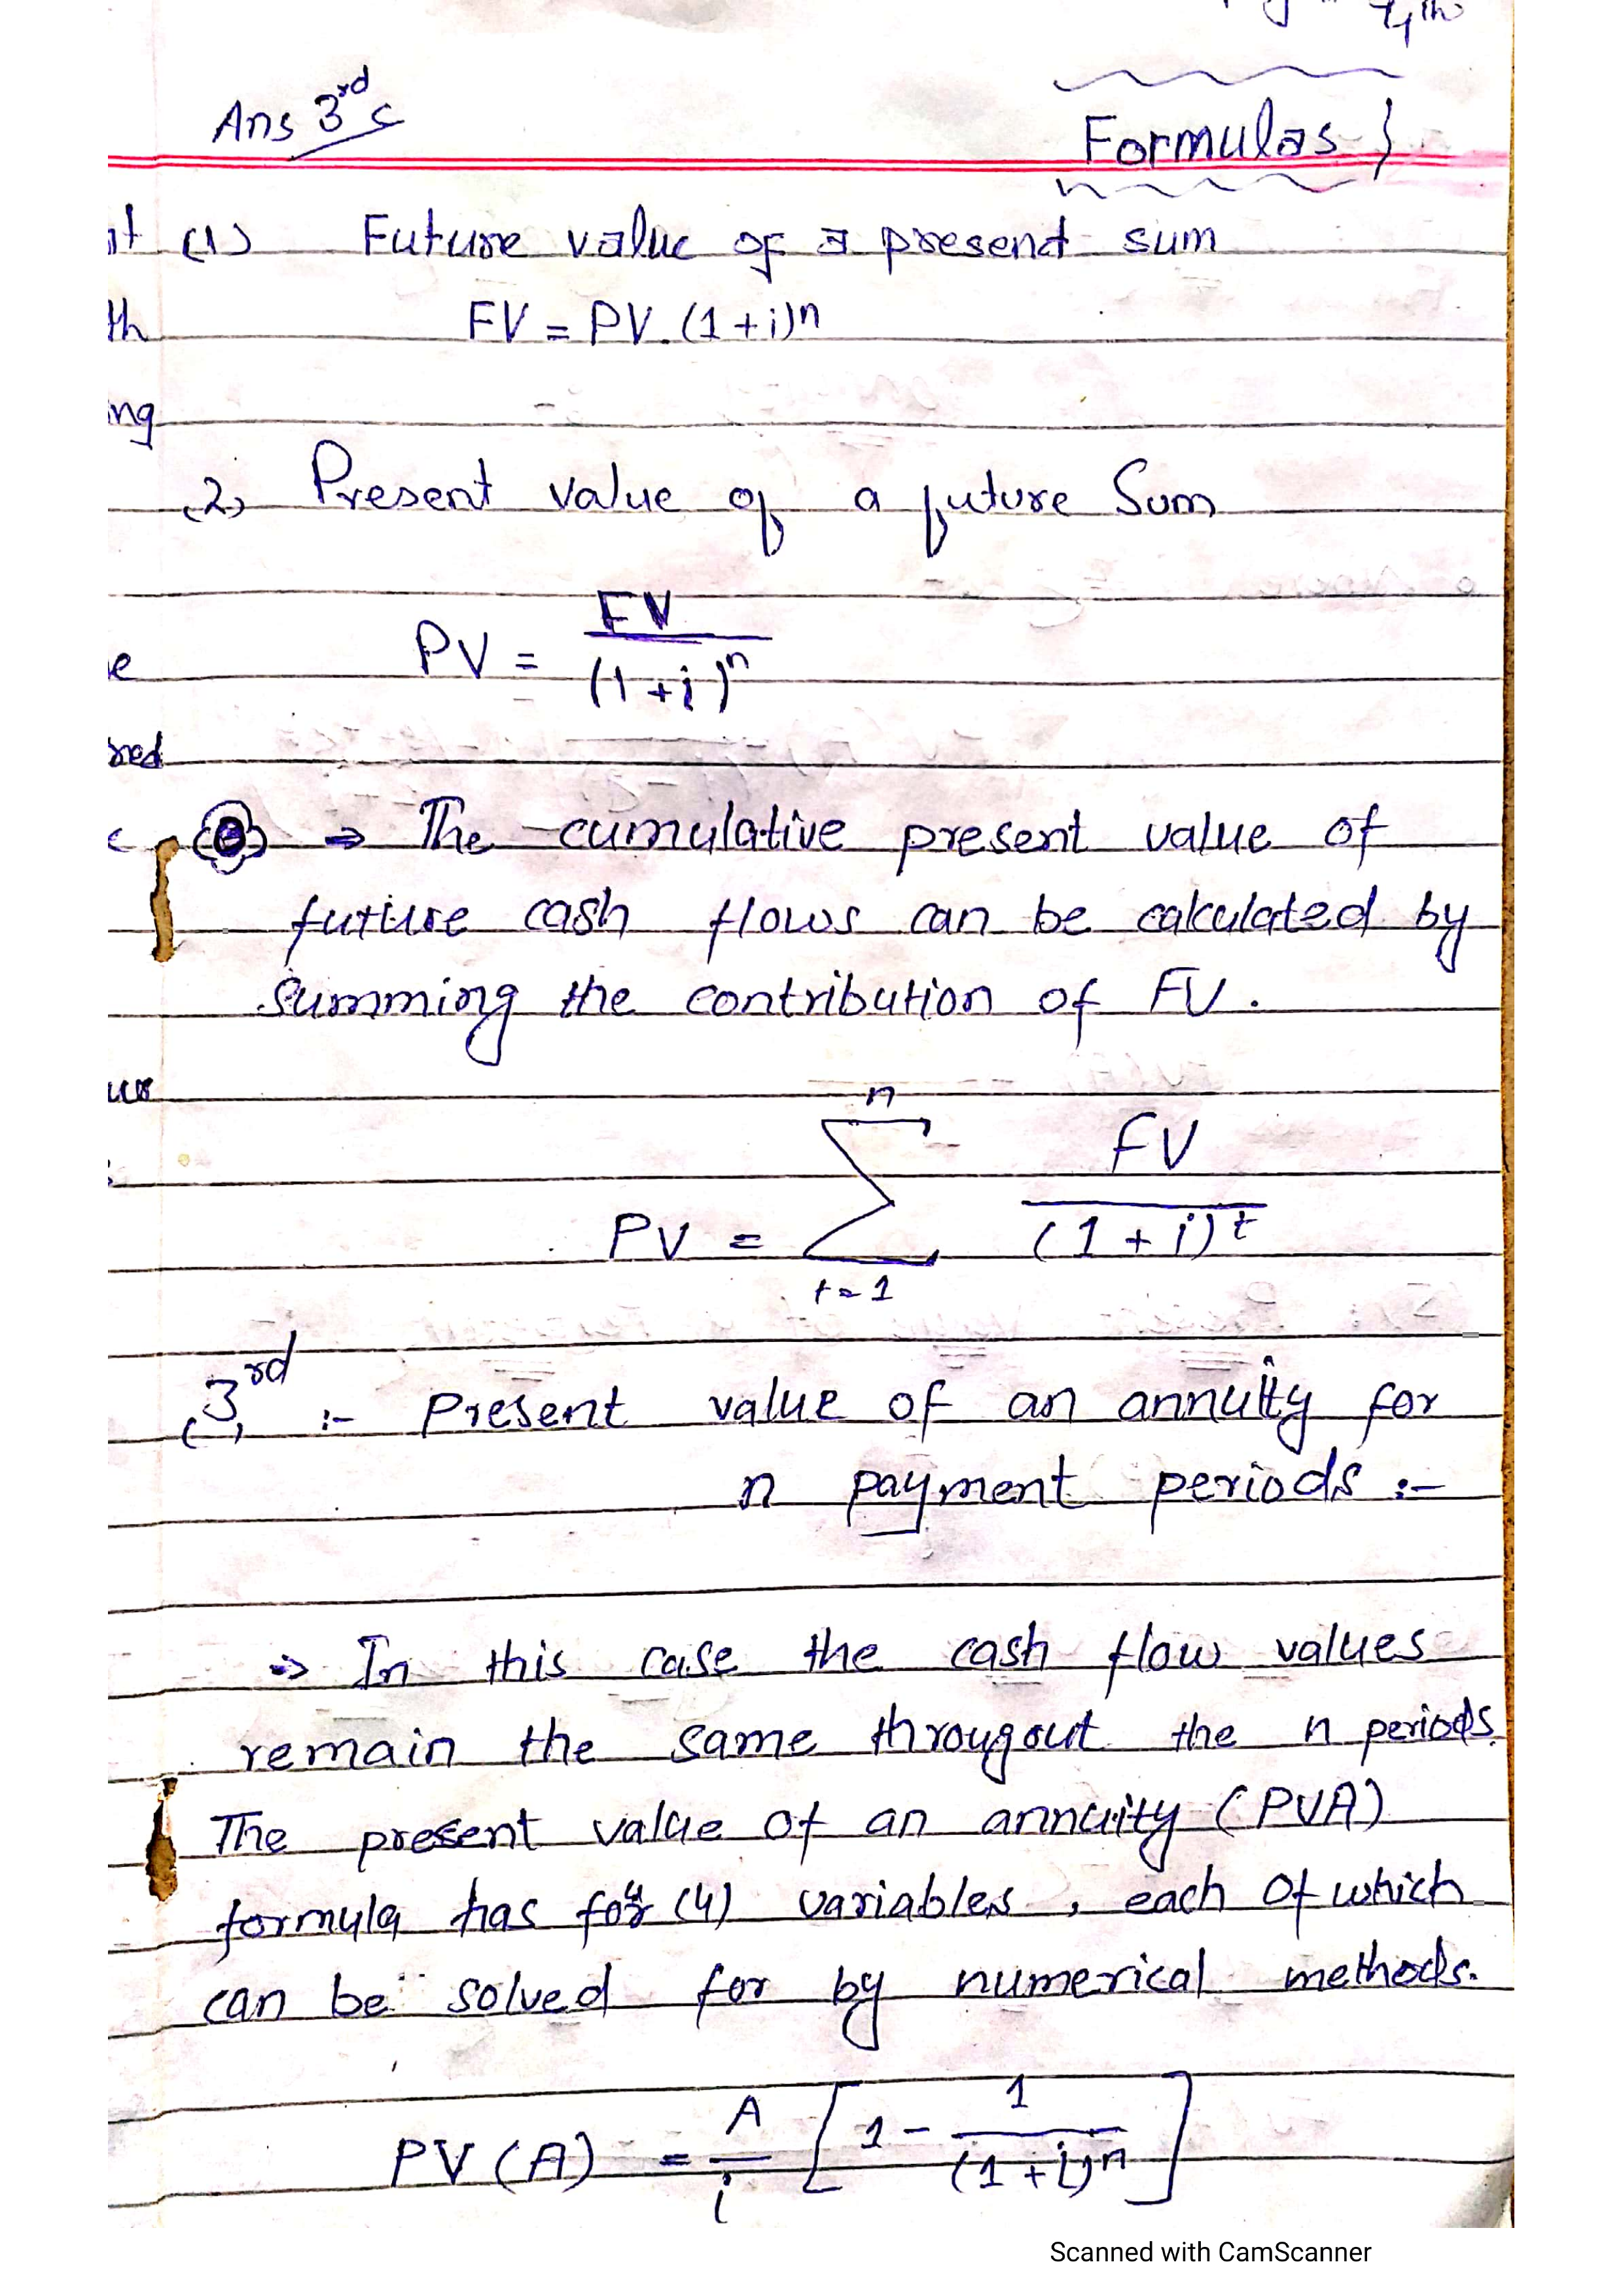 Ans 3rd c
Formulas }
(1) Future value of a present sum
FV = PV. (1+i)^n
ing
(2) Present value of a future Sum
PV = FV / (1+i)^n
⇒ The cumulative present value of
future cash flows can be calculated by
summing the contribution of FV.
PV = Σ_{t=1}^{n} FV / (1+i)^t
(3)rd :- Present value of an annuity for
n payment periods :-
⇒ In this case the cash flow values
remain the same througout the n periods.
The present value of an annuity (PVA)
formula has (4) variables, each of which
can be solved for by numerical methods.
PV(A) = A/i [1 - 1/(1+i)^n]
Scanned with CamScanner